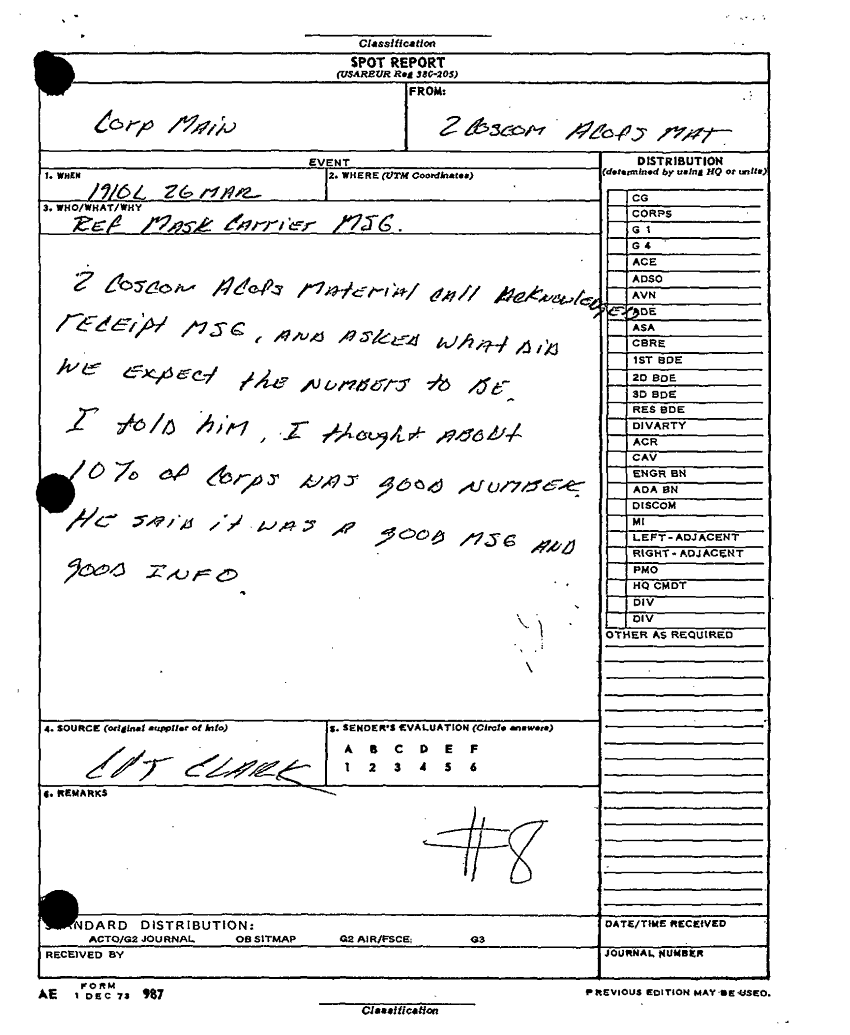 Classification
SPOT REPORT
(USAREUR Reg 380-205)
FROM:
Corp MAIN
2 COSCOM ACOPS MAT
EVENT
1. WHEN
1910L 26 MAR
2. WHERE (UTM Coordinates)
3. WHO/WHAT/WHY
REF MASK CARRIER MSG.
2 COSCOM ACOPS MATERIAL CALL ACKNOWLEDGED
RECEIPT MSG, AND ASKED WHAT DID
WE EXPECT the NUMBERS to BE.
I told him, I thought ABOUT
10% of Corps WAS good NUMBER.
HE SAID it WAS A good MSG AND
good INFO.
4. SOURCE (original supplier of info)
CPT CLARK
5. SENDER'S EVALUATION (Circle answers)
A B C D E F
1 2 3 4 5 6
6. REMARKS
#8
DISTRIBUTION
(determined by using HQ or units)
CG
CORPS
G 1
G 4
ACE
ADSO
AVN
ADE
ASA
CBRE
1ST BDE
2D BDE
3D BDE
RES BDE
DIVARTY
ACR
CAV
ENGR BN
ADA BN
DISCOM
MI
LEFT-ADJACENT
RIGHT-ADJACENT
PMO
HQ CMDT
DIV
DIV
OTHER AS REQUIRED
NDARD DISTRIBUTION:
ACTO/G2 JOURNAL OB SITMAP G2 AIR/FSCE: G3
RECEIVED BY
DATE/TIME RECEIVED
JOURNAL NUMBER
AE FORM 1 DEC 73 987
PREVIOUS EDITION MAY BE USED.
Classification